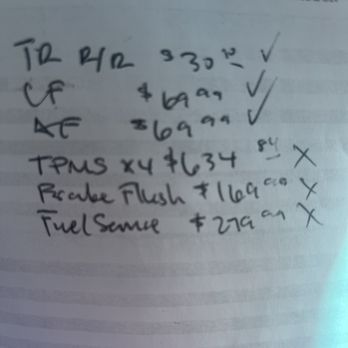 TR R/R $30 ✓
CF $69.99 ✓
AF $69.99 ✓
TPMS x4 $634.84 X
Flush $169.99 X
Fuel Service $279.99 X